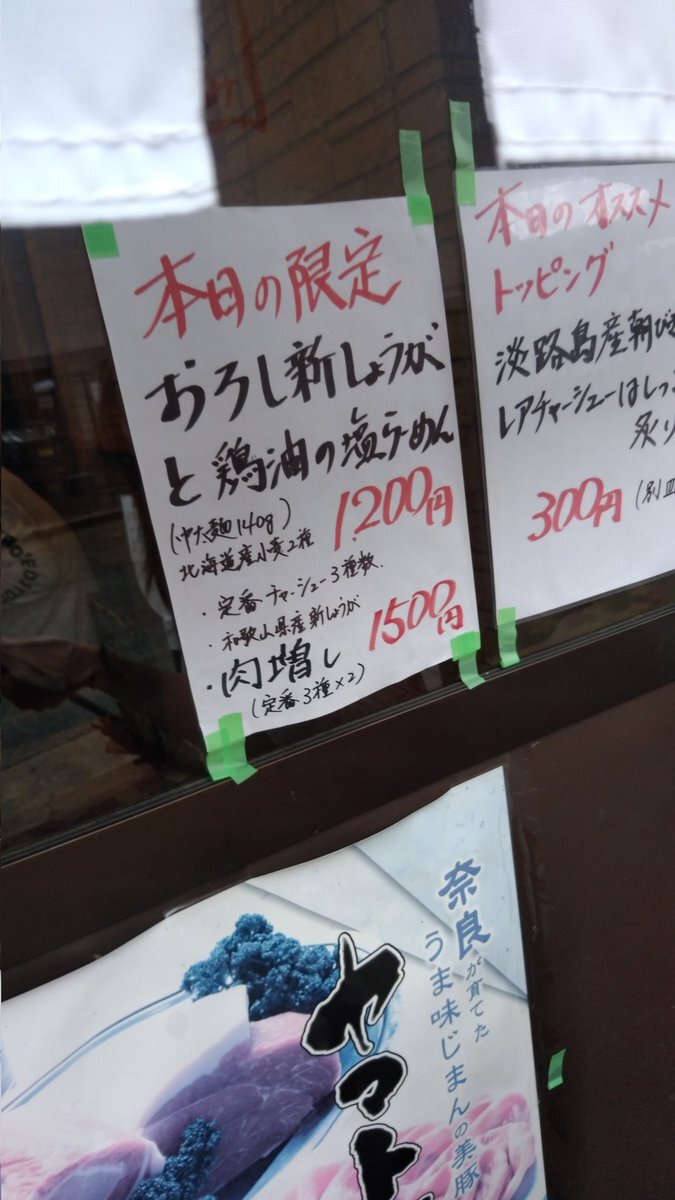 本日の限定
おろし新しょうが
と鶏油の塩らーめん
(中太麺140g)
北海道産小麦2種
1.200円
・定番チャーシュー3種数.
・和歌山県産新しょうが
・肉増し
1500円
(定番3種×2)
本日のオススメ
トッピング
淡路島産朝びき
レアチャーシューはしっこ
炙り
300円
(別皿
奈良が育てた
うま味じまんの美豚
ヤマト